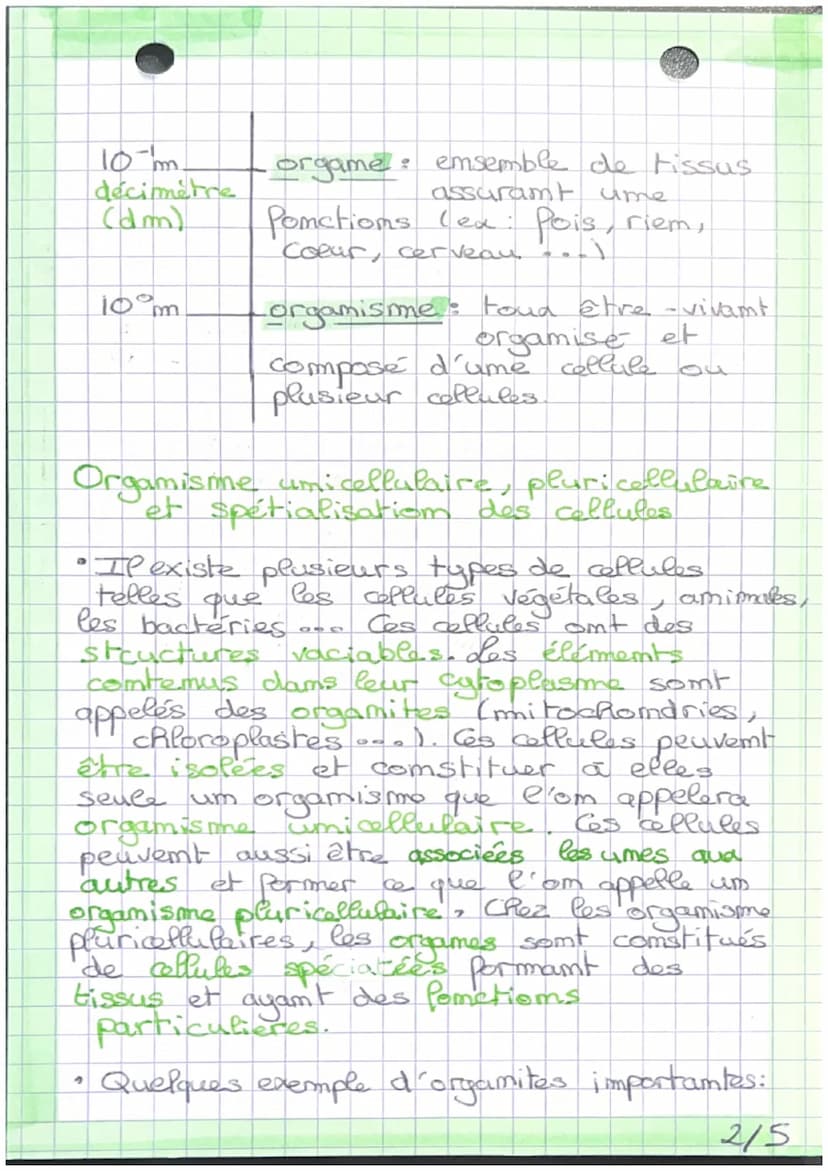 10⁻¹m organe : ensemble de tissus
décimètre assurant une
(dm) fonctions (ex : fois, rien,
coeur, cerveau ...)
10⁰m organisme : toux être-vivant
organisé et
composé d'une cellule ou
plusieur cellules.
Organisme unicellulaire, pluricellulaire
et spétialisation des cellules
• Il existe plusieurs types de cellules
telles que les cellules végétales, animales,
les bactéries ... Ces cellules ont des
structures variables. Les éléments
contenus dans leur cytoplasme sont
appelés des organites (mitochondries,
chloroplastes ...). Ces cellules peuvent
être isolées et constituer à elles
seule un organisme que l'on appelera
organisme unicellulaire. Ces cellules
peuvent aussi être associées les unes aux
autres et former ce que l'on appelle un
organisme pluricellulaire, Chez les organisme
pluricellulaires, les organes sont constitués
de cellules spéciatéés formant des
tissus et ayant des fonctions
particulières.
• Quelques exemple d'organites importantes:
2/5